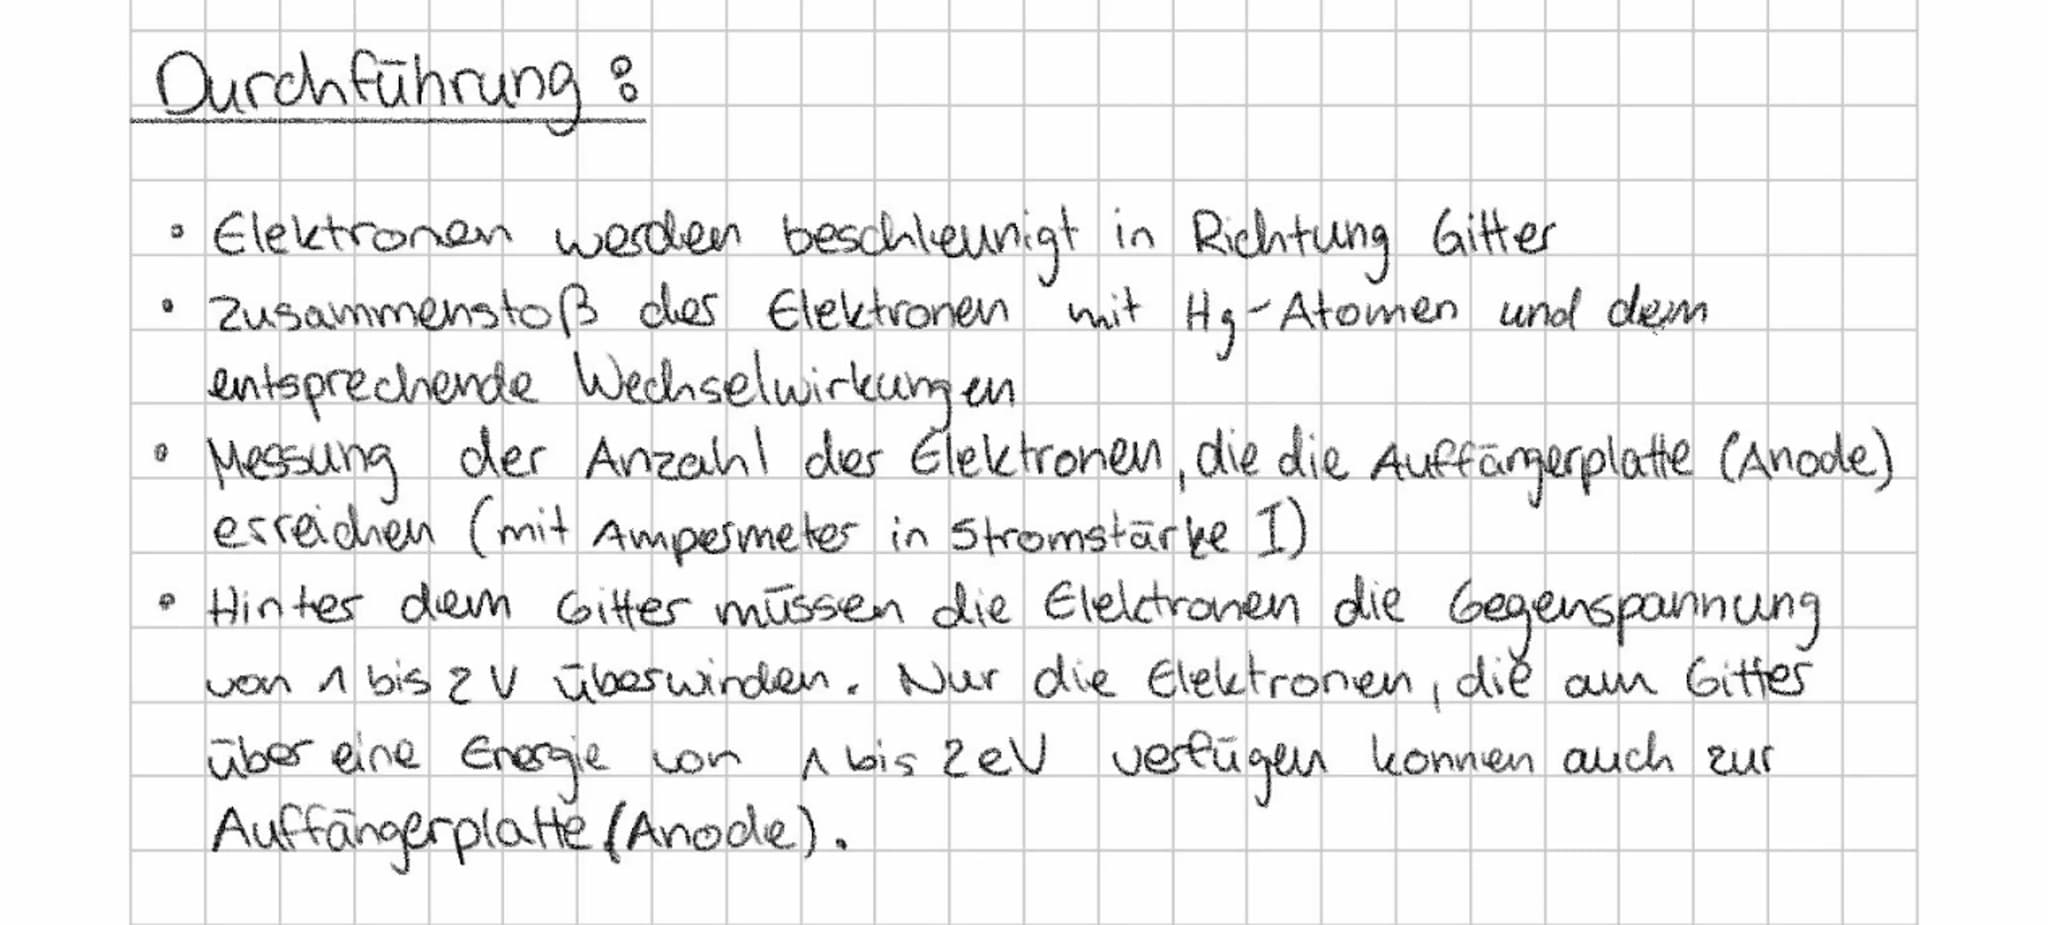 Durchführung:
• Elektronen werden beschleunigt in Richtung Gitter
• Zusammenstoß der Elektronen mit Hg-Atomen und dem
entsprechende Wechselwirkungen
• Messung der Anzahl der Elektronen, die die Auffängerplatte (Anode)
erreichen (mit Ampermeter in Stromstärke I)
• Hinter dem Gitter müssen die Elektronen die Gegenspannung
von 1 bis 2 V überwinden. Nur die Elektronen, die am Gitter
über eine Energie von 1 bis 2 eV verfügen konnen auch zur
Auffängerplatte (Anode).